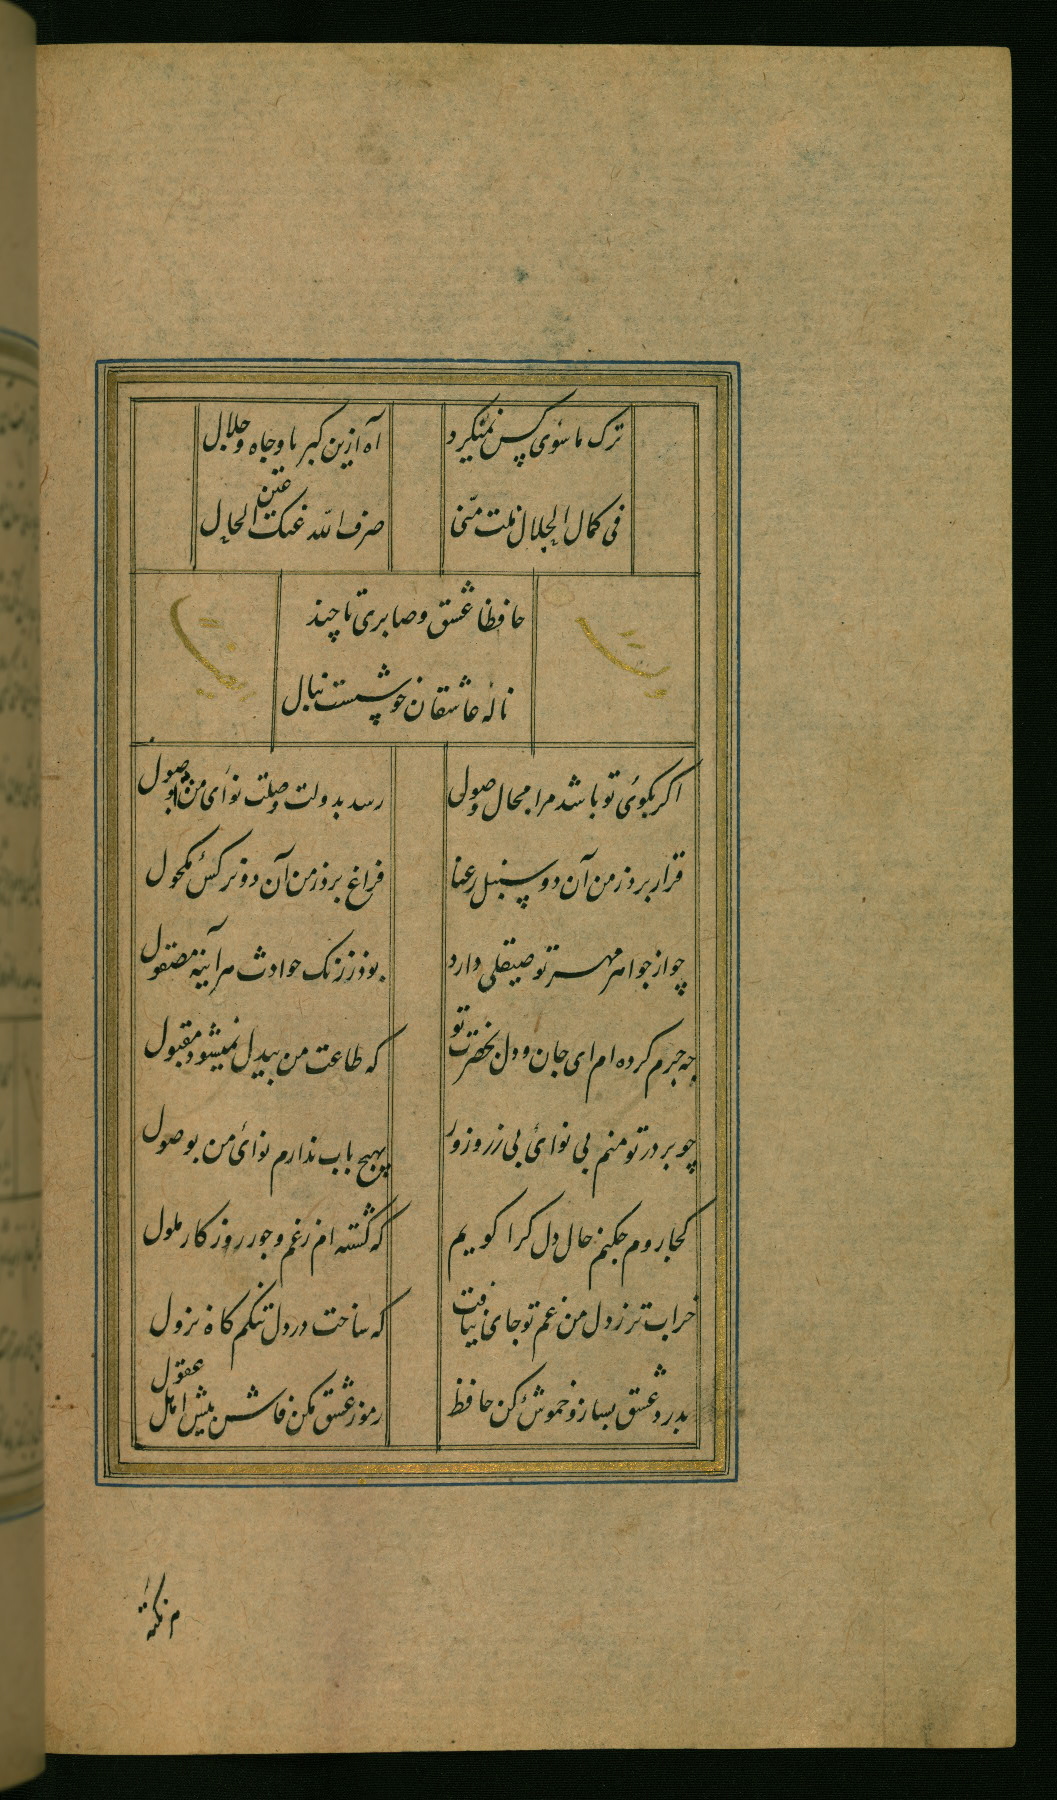 ترک ما سوی کس نمینگرد
آه ازین کبریا و جاه و جلال
فی کمال الجلال نلت منی
صرف الله عنک عین الحال
حافظا عشق و صابری تا چند
ناله عاشقان خوشست بنال
اگر بکوی تو باشد مرا مجال وصول
رسد بدولت وصلت نوای من باصول
قرار برد ز من آن دو سنبل رعنا
فراغ برد ز من آن دو نرکس مکحول
چو از جواهر مهر تو صیقلی دارد
بود ز زنک حوادث هر آینه مصقول
چه جرم کرده ام ای جان و دل بحضرت تو
که طاعت من بیدل نمیشود مقبول
چو بر در تو منم بی نوای بی زر و زور
بهیچ باب ندارم نوای من بوصول
کجا روم چکنم حال دل کرا کویم
که کشته ام ز غم و جور روزکار ملول
خراب تر ز دل من غم تو جای نیافت
که ساخت در دل تنکم کاه نزول
بدرد عشق بساز و خموش کن حافظ
رموز عشق مکن فاش پیش اهل عقول